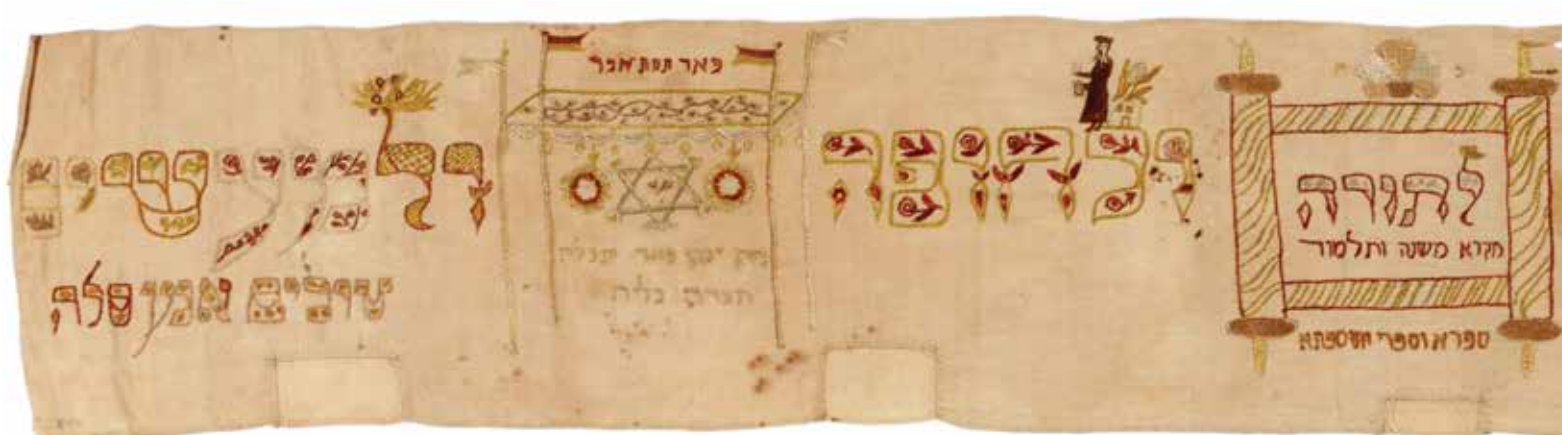 לתורה
מקרא משנה ותלמוד
ספרא וספרי ותוספתא
ולחופה
פאר תחת אפר
פאר
תעדה כליה
ולמעשים
טובים אמן סלה